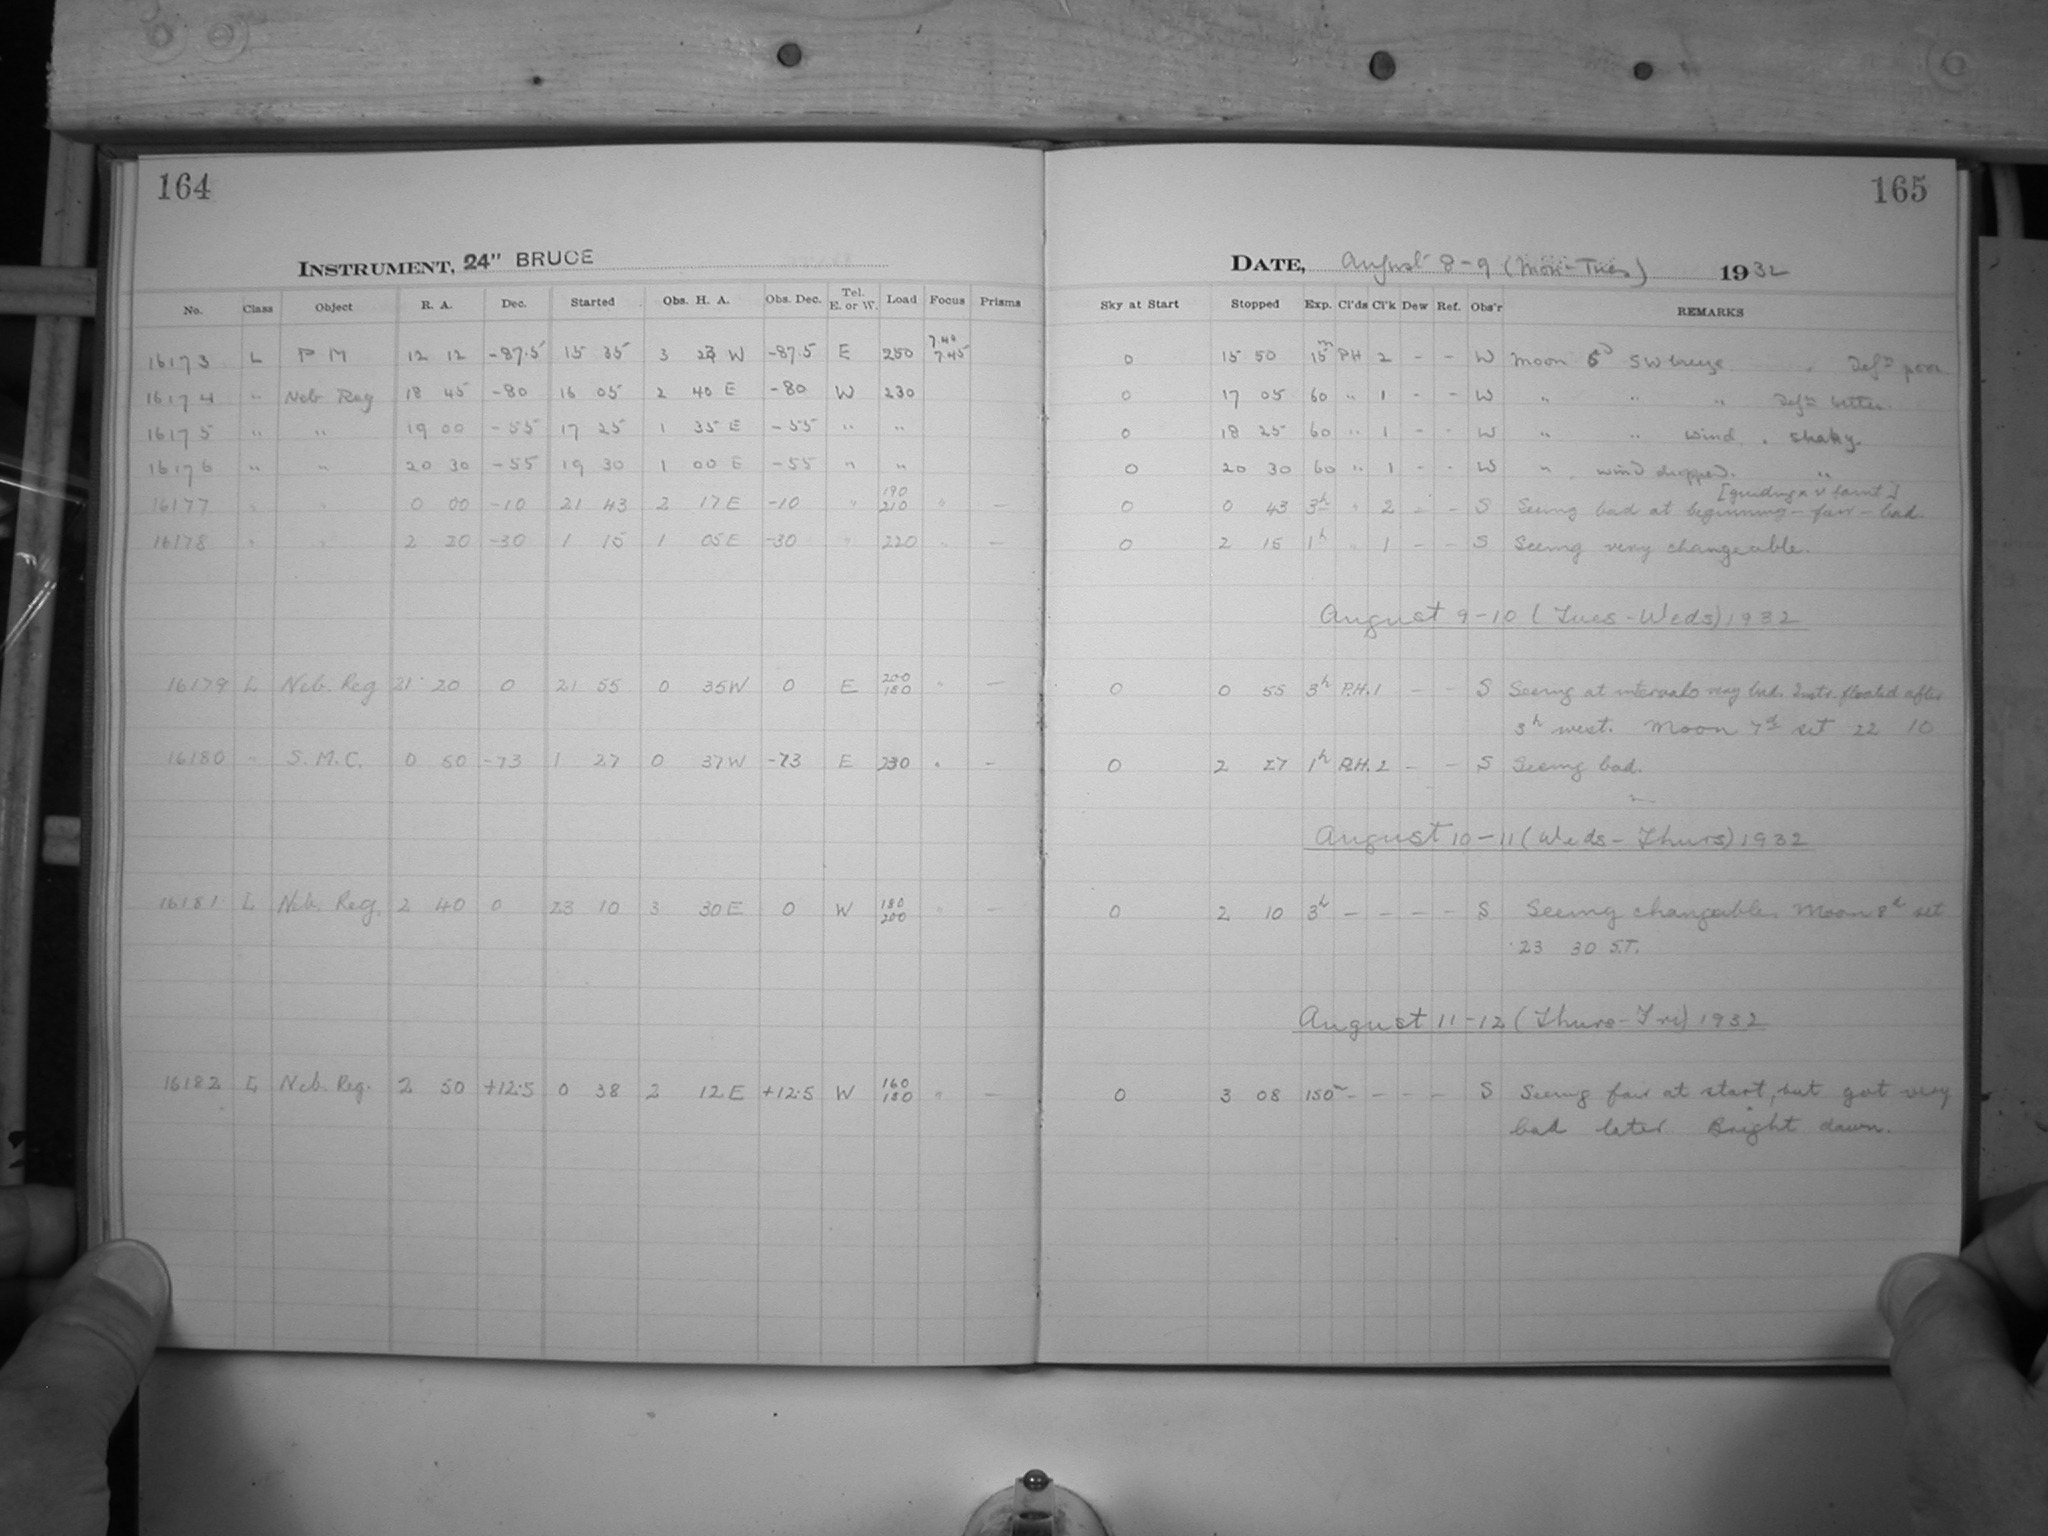 164
INSTRUMENT, 24" BRUCE
No. Class Object R. A. Dec. Started Obs. H. A. Obs. Dec. Tel. E. or W. Load Focus Prisms
16173 L P M 12 12 -87.5 15 35 3 23 W -87.5 E 250 7.40 7.45
16174 " Neb Reg 18 45 -80 16 05 2 40 E -80 W 230
16175 " " 19 00 -55 17 25 1 35 E -55 " "
16176 " " 20 30 -55 19 30 1 00 E -55 " "
16177 " " 0 00 -10 21 43 2 17 E -10 " 190 210 " —
16178 " " 2 20 -30 1 15 1 05 E -30 " 220 " —
16179 L Neb. Reg 21 20 0 21 55 0 35 W 0 E 200 180 " —
16180 " S.M.C. 0 50 -73 1 27 0 37 W -73 E 230 " —
16181 L Neb. Reg. 2 40 0 23 10 3 30 E 0 W 180 200 " —
16182 L Neb. Reg. 2 50 +12.5 0 38 2 12 E +12.5 W 160 180 " —
165
DATE, August 8-9 (Mon-Tues) 1932
Sky at Start Stopped Exp. Cl'ds Cl'k Dew Ref. Obs'r REMARKS
0 15 50 15m PH 2 - - W Moon 6d SW breeze. Defn poor
0 17 05 60 " 1 - - W " " " Defn better.
0 18 25 60 " 1 - - W " " wind. shaky
0 20 30 60 " 1 - - W " wind dropped. "
0 0 43 3h " 2 - - S Seeing bad at beginning - fair - bad. [guiding * v faint]
0 2 15 1h " 1 - - S Seeing very changeable.
August 9-10 (Tues-Weds) 1932
0 0 55 3h P.H. 1 - - S Seeing at intervals very bad. Instr. floated after
3h west. Moon 7d set 22 10
0 2 27 1h P.H. 2 - - S Seeing bad.
August 10-11 (Weds-Thurs) 1932
0 2 10 3h - - - - S Seeing changeable. Moon 8d set
23 30 S.T.
August 11-12 (Thurs-Fri) 1932
0 3 08 150m - - - - S Seeing fair at start, but got very
bad later. Bright dawn.